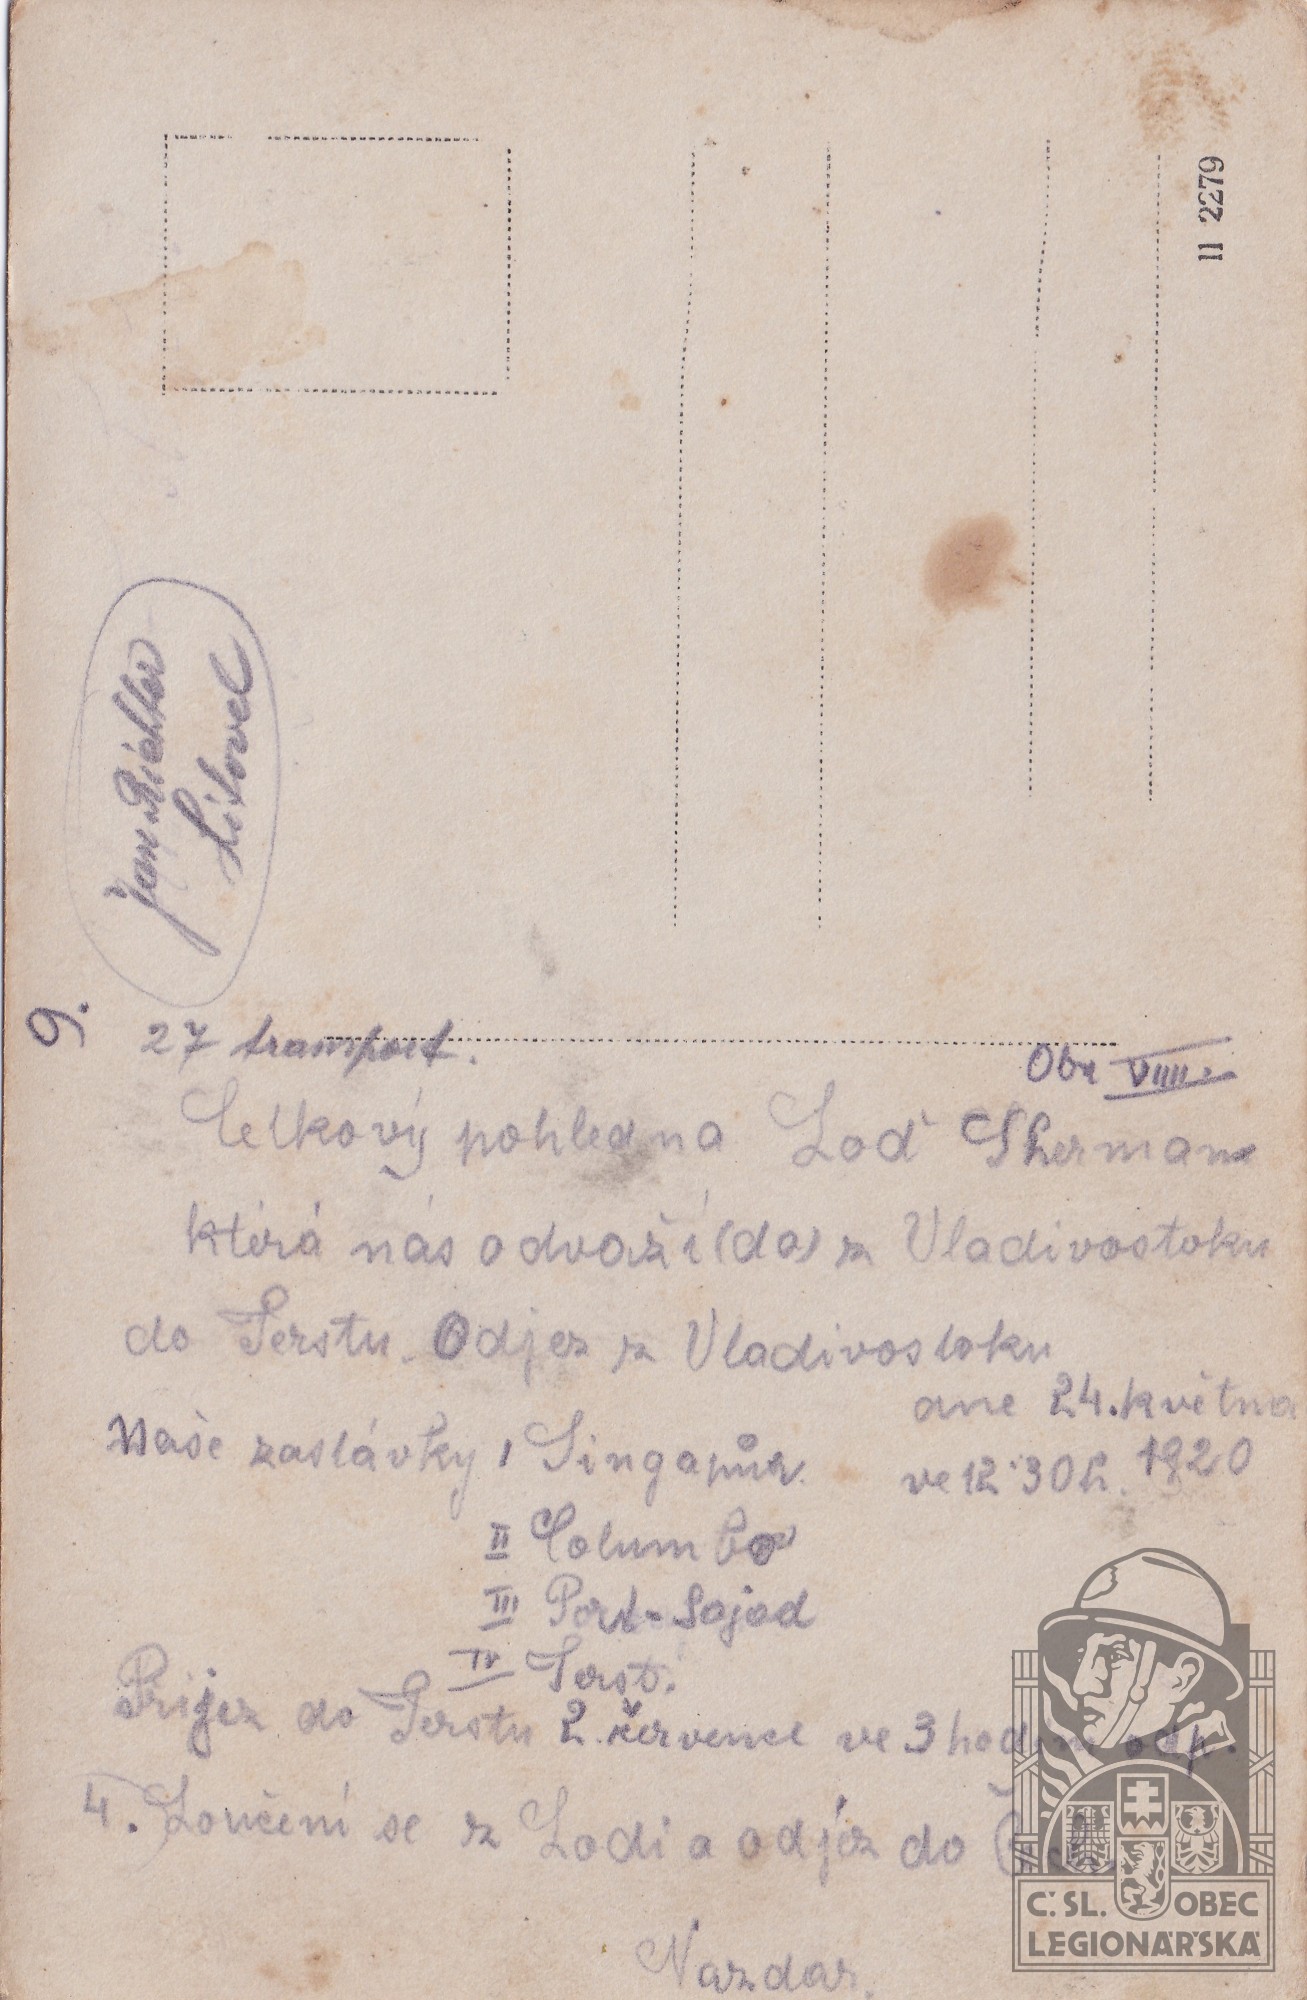 11 2279
Jan Richter
Litovel
9.
27 transport.
Obr VIIII.
Celkový pohled na Loď Sherman
která nás odvaží (do) z Vladivostoku
do Terstu. Odjez z Vladivostoku
dne 24. května
Naše zastávky I Singapůr. ve 12·30 h. 1920
II Columbo
III Port-Sajod
IV Terst.
Prijez do Terstu 2. července ve 3 hodin odp.
4. Loučení se z Lodi a odjez do
Nazdar.
Č. SL. OBEC
LEGIONÁŘSKÁ